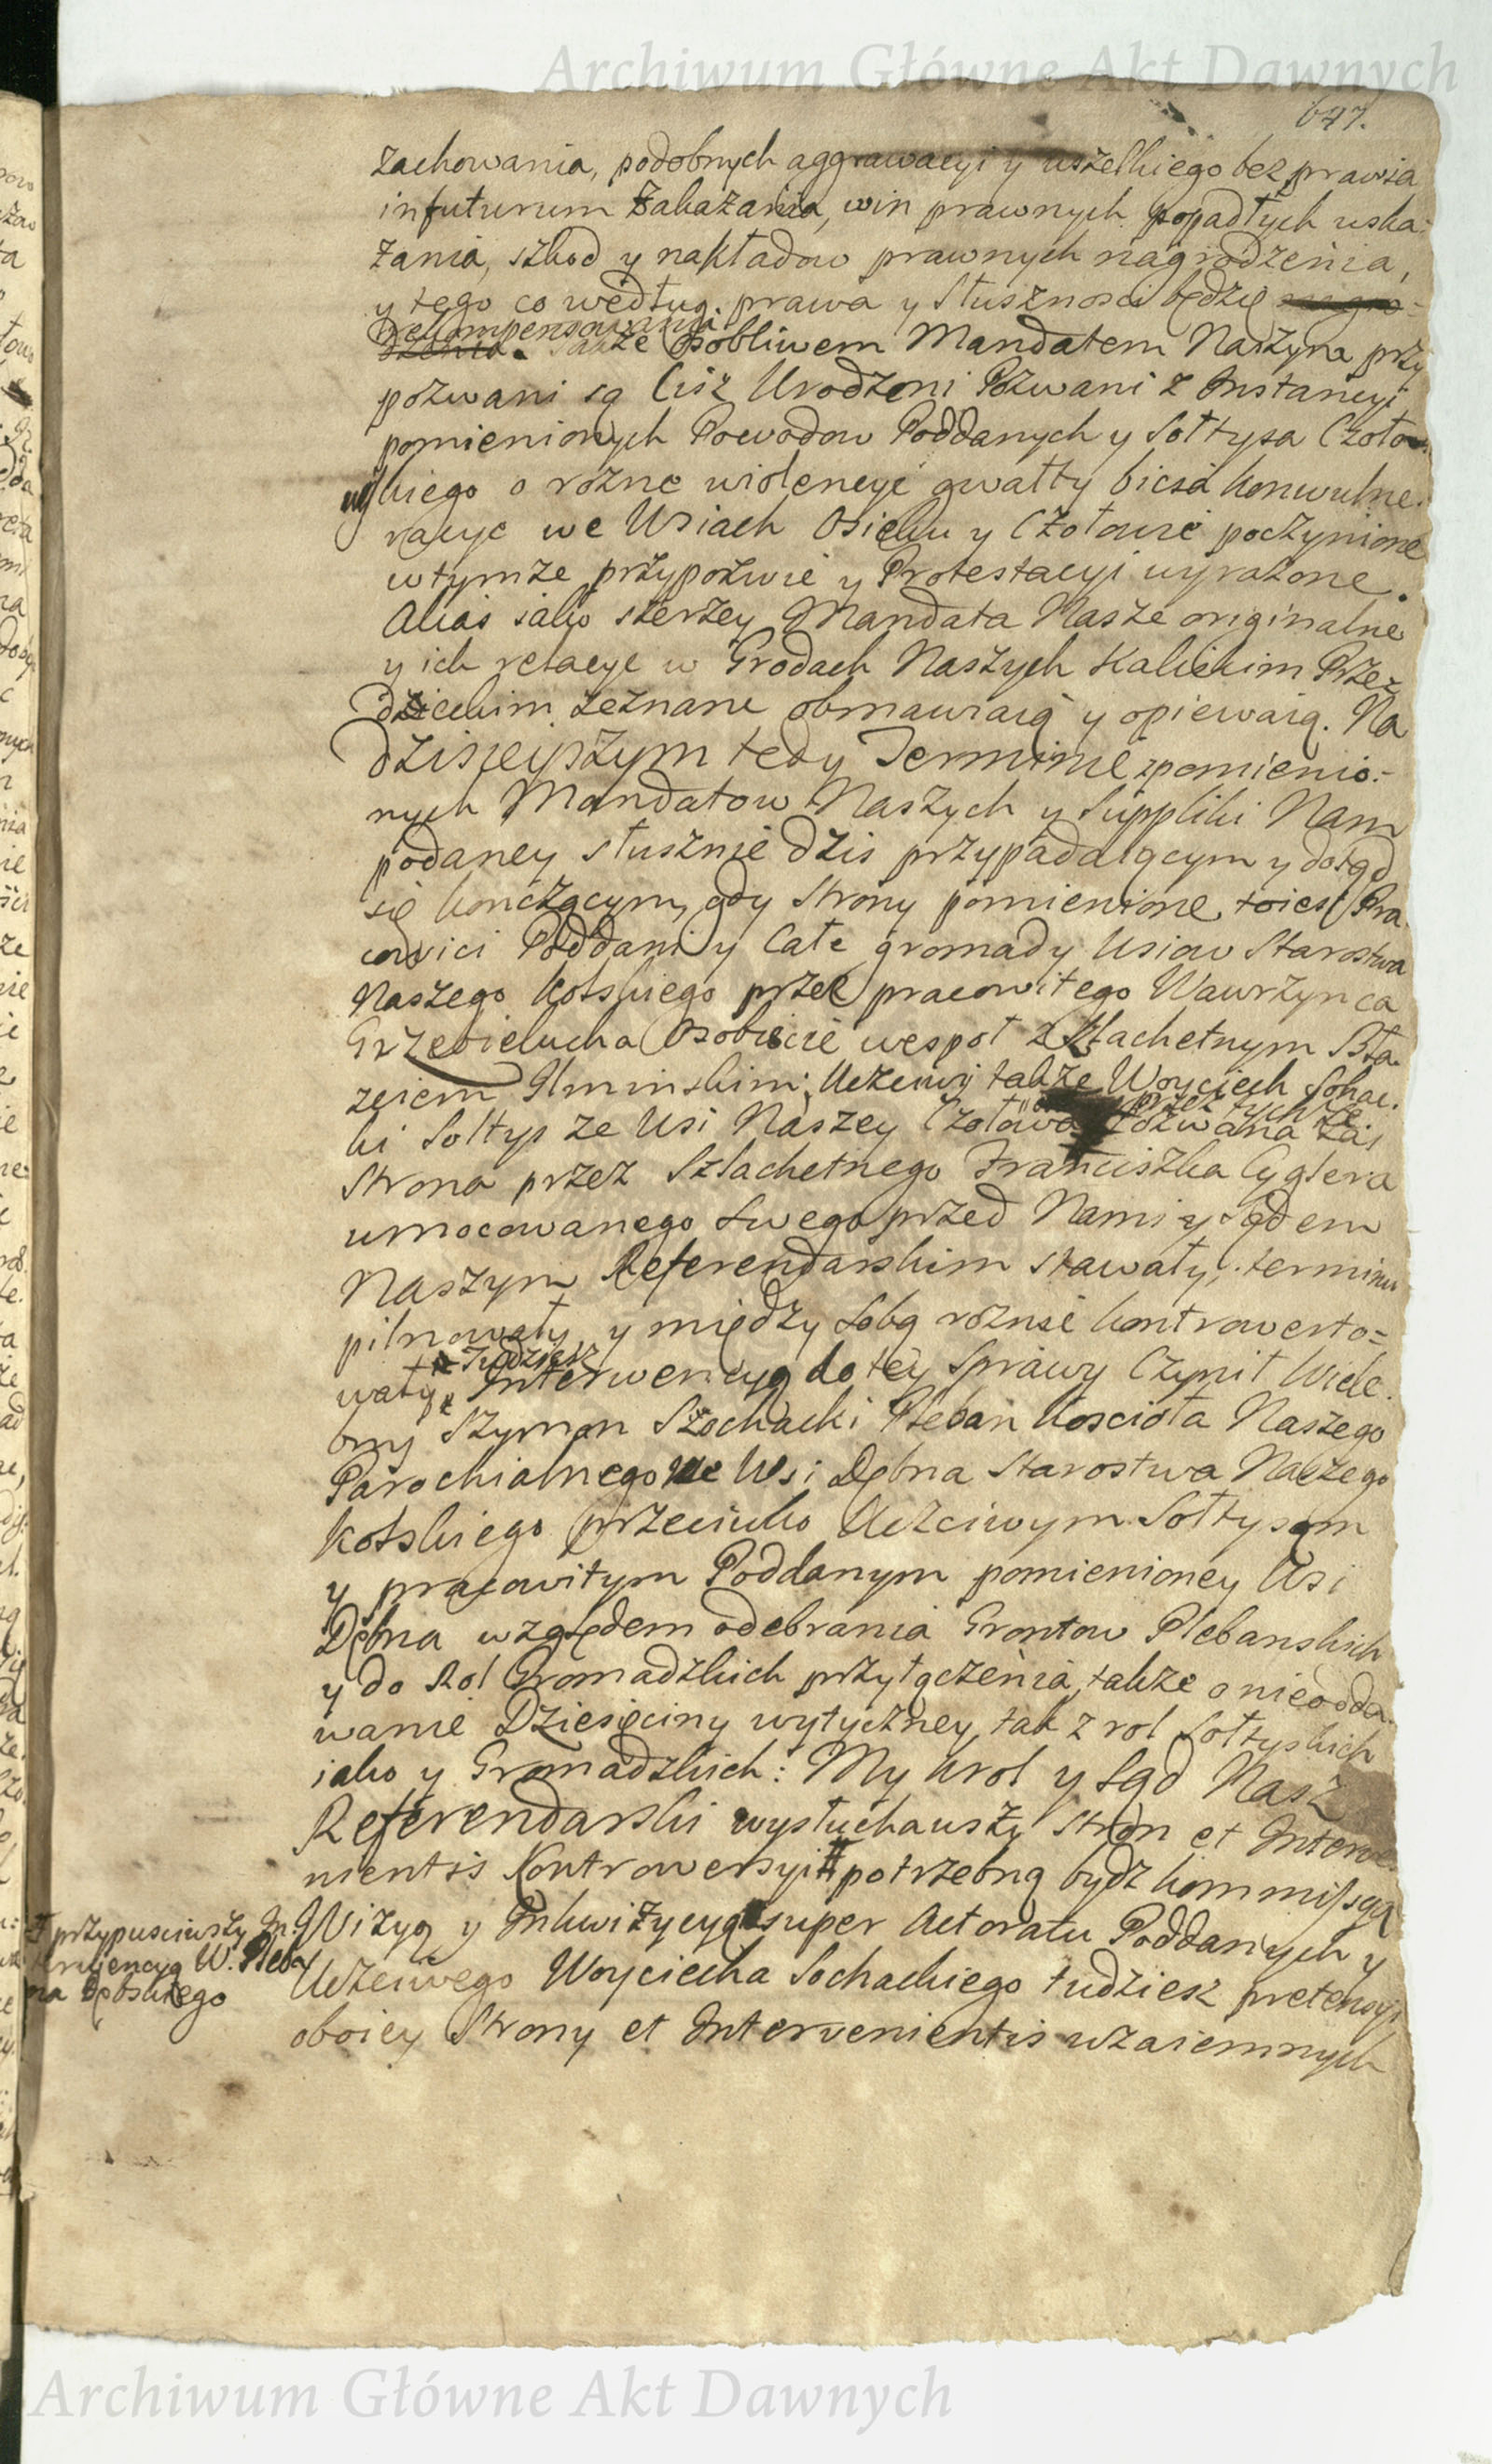 Archiwum Główne Akt Dawnych
647.
zachowania, podobnych aggrawacyi y wszelkiego bez prawia
in futurum zakazania, win prawnych popadłych wska-
zania, szkod y nakładow prawnych nagrodzenia,
y tego co według prawa y słusznosci będzie
rekompensowania.
Także osobliwem Mandatem Naszym przy
pozwani są Ciż Urodzeni Pozwani z Instancyi
pomienionych Powodow Poddanych y Sołtysa Czoło-
wskiego o rożne wiolencye gwałty bicia konwulne-
racye we Wsiach Osieku y Czołowie poczynione
w tymże przypozwie y Protestacyi wyrażone.
Alias iako szerzey Mandata Nasze originalne
y ich relacye w Grodach Naszych Kaliskim Przez
dzieckim zeznane obmawiaią y opiewaią. Na
dzisieyszym tedy Terminie z pomienio-
nych Mandatow Naszych y Suppliki Nam
podaney słusznie dzis przypadaiącym y dotąd
się konczącym, gdy Strony pomienione, toiest Pra-
cowici Poddani y Całe gromady Wsiow Starostwa
Naszego Kolskiego przez pracowitego Wawrzynca
Grzegielucha Osobiscie wespoł z Szlachetnym Bła-
zeiem Glminskim; Uczciwy także Woyciech Sochac-
ki Sołtys ze Wsi Naszey Czołowa przez tychże
Pozwana zas
Strona przez Szlachetnego Franciszka Cyglera
umocowanego swego przed Nami y Sądem
Naszym Referendarskim stawały, terminu
pilnowały, y między sobą rożnie kontrowerto-
wały, Tudziesz
Interwencyą do tey Sprawy Czynił Wiele-
bny Szymon Sochacki Pleban Koscioła Naszego
Parochialnego we Wsi Dębna Starostwa Naszego
Kolskiego przeciwko Uczciwym Sołtysom
y pracowitym Poddanym pomienioney Wsi
Dębna względem odebrania Grontow Plebanskich
y do Rol Gromadzkich przyłączenia, także o nieodda-
wanie Dziesięciny wytyczney, tak z rol Sołtyskich
iako y Gromadzkich: My Krol y Sąd Nasz
Referendarski wysłuchawszy Stron et Interve-
nientis Kontrowersyi # potrzebną bydz kommissyą
Wizyą y Inkwizycyą super Actoratu Poddanych y
Uczciwego Woyciecha Sochackiego tudziesz pretensyi
oboiey Strony et Intervenientis wzaiemnych
# przypusciwszy In-
terwencyą W. Pleba-
na Dębskiego
Archiwum Główne Akt Dawnych